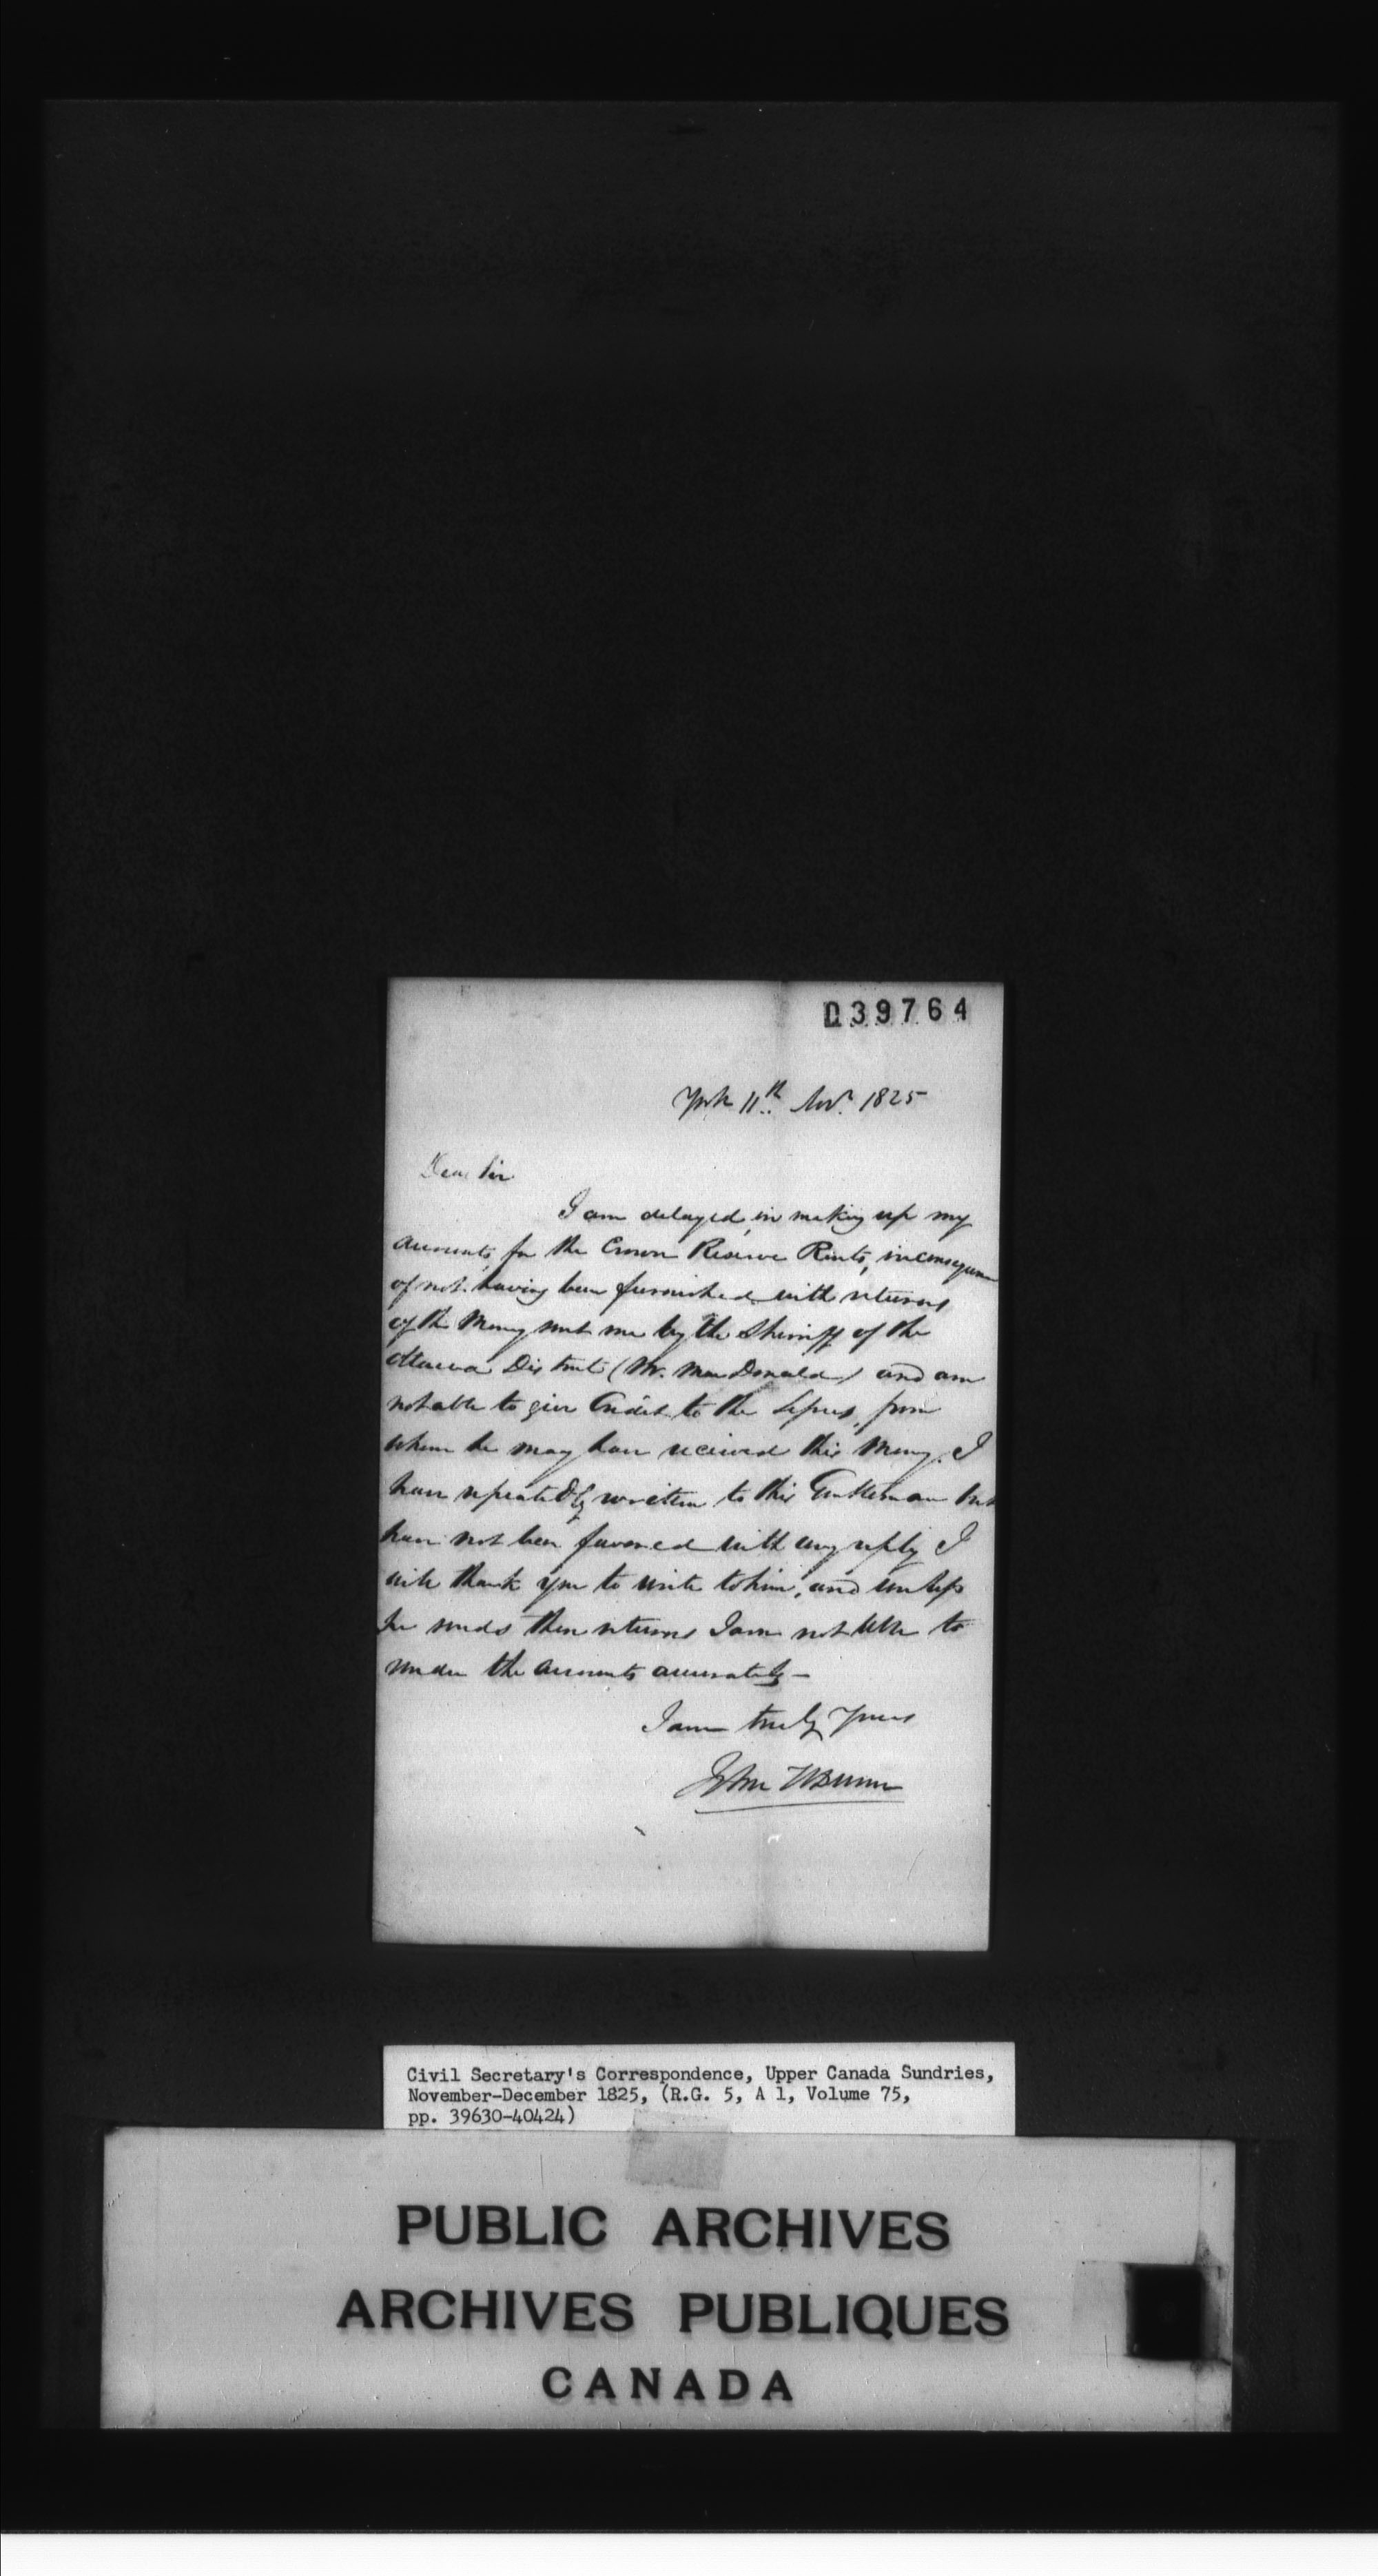 D39764
York 11th Novr. 1825
Dear Sir
I am delayed in making up my
accounts, for the Crown Reserve Rents, in consequence
of not having been furnished with returns
of the Money sent me by the Sheriff of the
Ottawa District (Mr. MacDonald) and am
not able to give Credit to the Lessees, from
whom he may have received this Money. I
have repeatedly written to this Gentleman but
have not been favored with any reply I
will thank you to write to him, and unless
he sends these returns I am not able to
render the accounts accurately—
I am truly Yours
John H Dunn
Civil Secretary's Correspondence, Upper Canada Sundries,
November-December 1825, (R.G. 5, A 1, Volume 75,
pp. 39630-40424)
PUBLIC ARCHIVES
ARCHIVES PUBLIQUES
CANADA